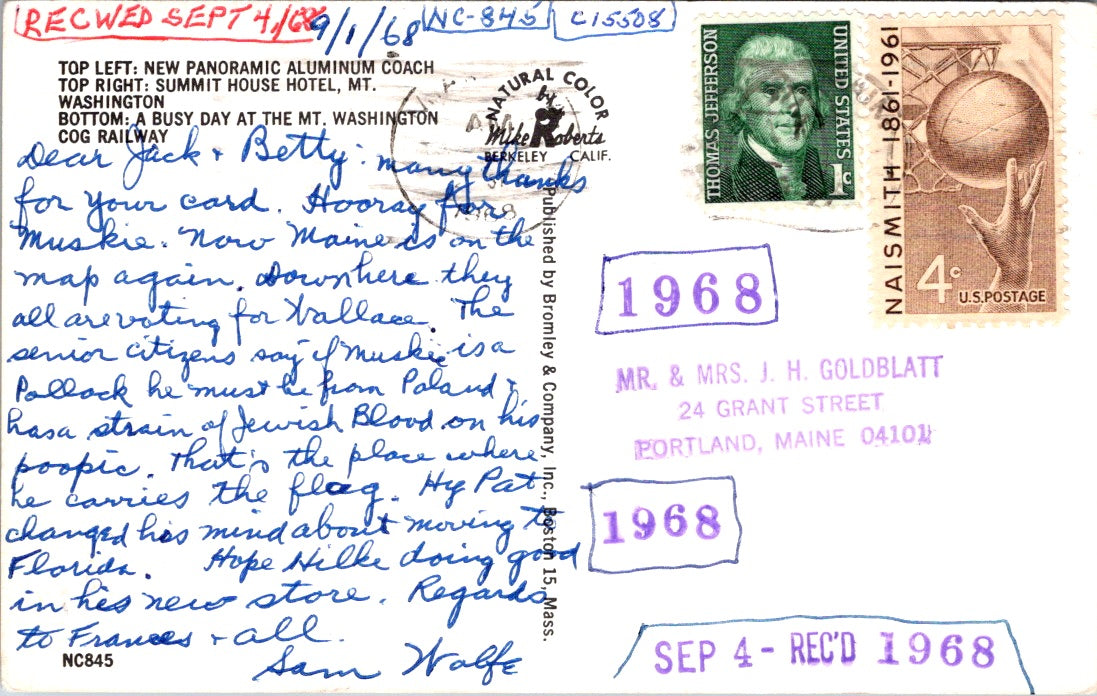 RECWED SEPT 4,/68 9/1/68 NC-845 C15508
TOP LEFT: NEW PANORAMIC ALUMINUM COACH
TOP RIGHT: SUMMIT HOUSE HOTEL, MT.
WASHINGTON
BOTTOM: A BUSY DAY AT THE MT. WASHINGTON
COG RAILWAY
NATURAL COLOR
by
Mike Roberts
BERKELEY CALIF.
AM
1968
Dear Jack & Betty: many thanks
for your card. Hooray for
Muskie. Now Maine is on the
map again. Down here they
all are voting for Wallace. The
senior citizens say if Muskie is a
Pollack he must be from Poland &
has a strain of Jewish Blood on his
poopic. That's the place where
he carries the flag. Hy Pat
changed his mind about moving to
Florida. Hope Hilke doing good
in his new store. Regards
to Frances & all.
Sam Wolfe
NC845
Published by Bromley & Company, Inc., Boston 15, Mass.
THOMAS JEFFERSON
UNITED STATES
1c
NAISMITH 1861-1961
4c
U.S. POSTAGE
1968
MR. & MRS. J. H. GOLDBLATT
24 GRANT STREET
PORTLAND, MAINE 04101
1968
SEP 4 - REC'D 1968